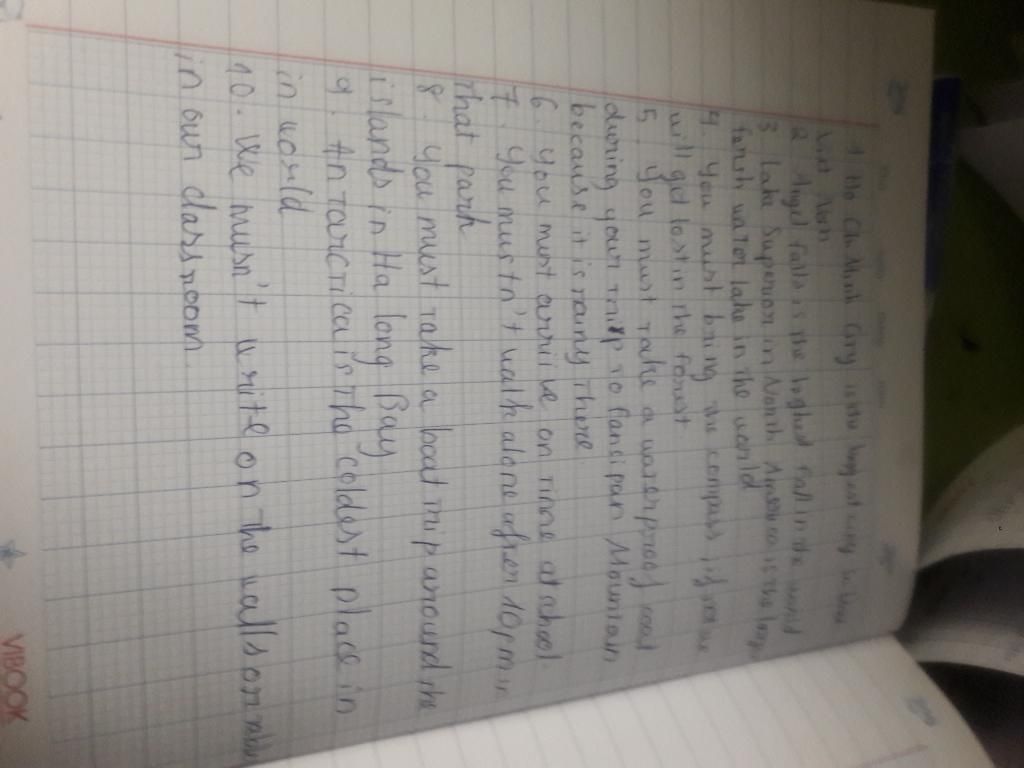 1 Ho Chi Minh City is the biggest city in
Viet Nam
2 Angel falls is the highest fall in the world
3 Lake Superior in North America is the
fresh water lake in the world
4. You must bring the compass if you
will get lost in the forest.
5. You must take a waterproof coat
during your trip to fansipan Mountain
because it is rainy there.
6. You must arrive on time at school.
7. You mustn't walk alone after 10 pm in
that park
8. You must take a boat trip around the
islands in Ha long Bay
9. Antarctica is the coldest place in
in world
10. We musn't write on the walls or
in our classroom.
VIBOOK